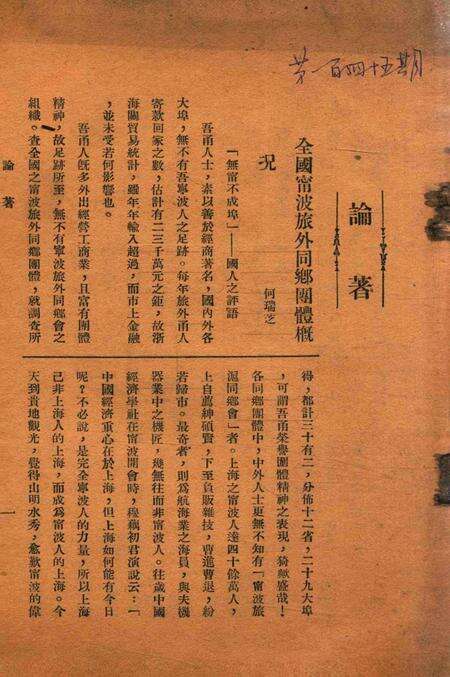 第一百四十五期
論著
全國甯波旅外同鄉團體概
况
何瑞芝
「無甯不成埠」——國人之評語
吾甬人士，素以善於經商著名，國內外各
大埠，無不有吾寧波人之足跡。每年旅外甬人
寄款回家之數，估計有二三千萬元之鉅，故浙
海關貿易統計，雖年年輸入超過，而市上金融
，並未受若何影響也。
吾甬人既多外出經營工商業，且富有團體
精神，故足跡所至，無不有寧波旅外同鄉會之
組織。查全國之甯波旅外同鄉團體，就調查所
得，都計三十有二，分佈十二省，二十九大埠
，可謂吾甬榮譽團體精神之表現，猗歟盛哉！
各同鄉團體中，中外人士更無不知有「甯波旅
滬同鄉會」者。上海之甯波人達四十餘萬人，
上自薦紳碩賢，下至負販雜技，曹進曹退，紛
若歸市。最奇者，則爲航海業之海員，與夫機
器業中之機匠，幾無往而非甯波人。往歲中國
經濟學社在甯波開會時，穆藕初君演說云：「
中國經濟重心在於上海，但上海如何能有今日
呢？不必說，是完全寧波人的力量，所以上海
已非上海人的上海，而成爲甯波人的上海。今
天到貴地觀光，覺得山明水秀，愈歎甯波的偉
論著
一